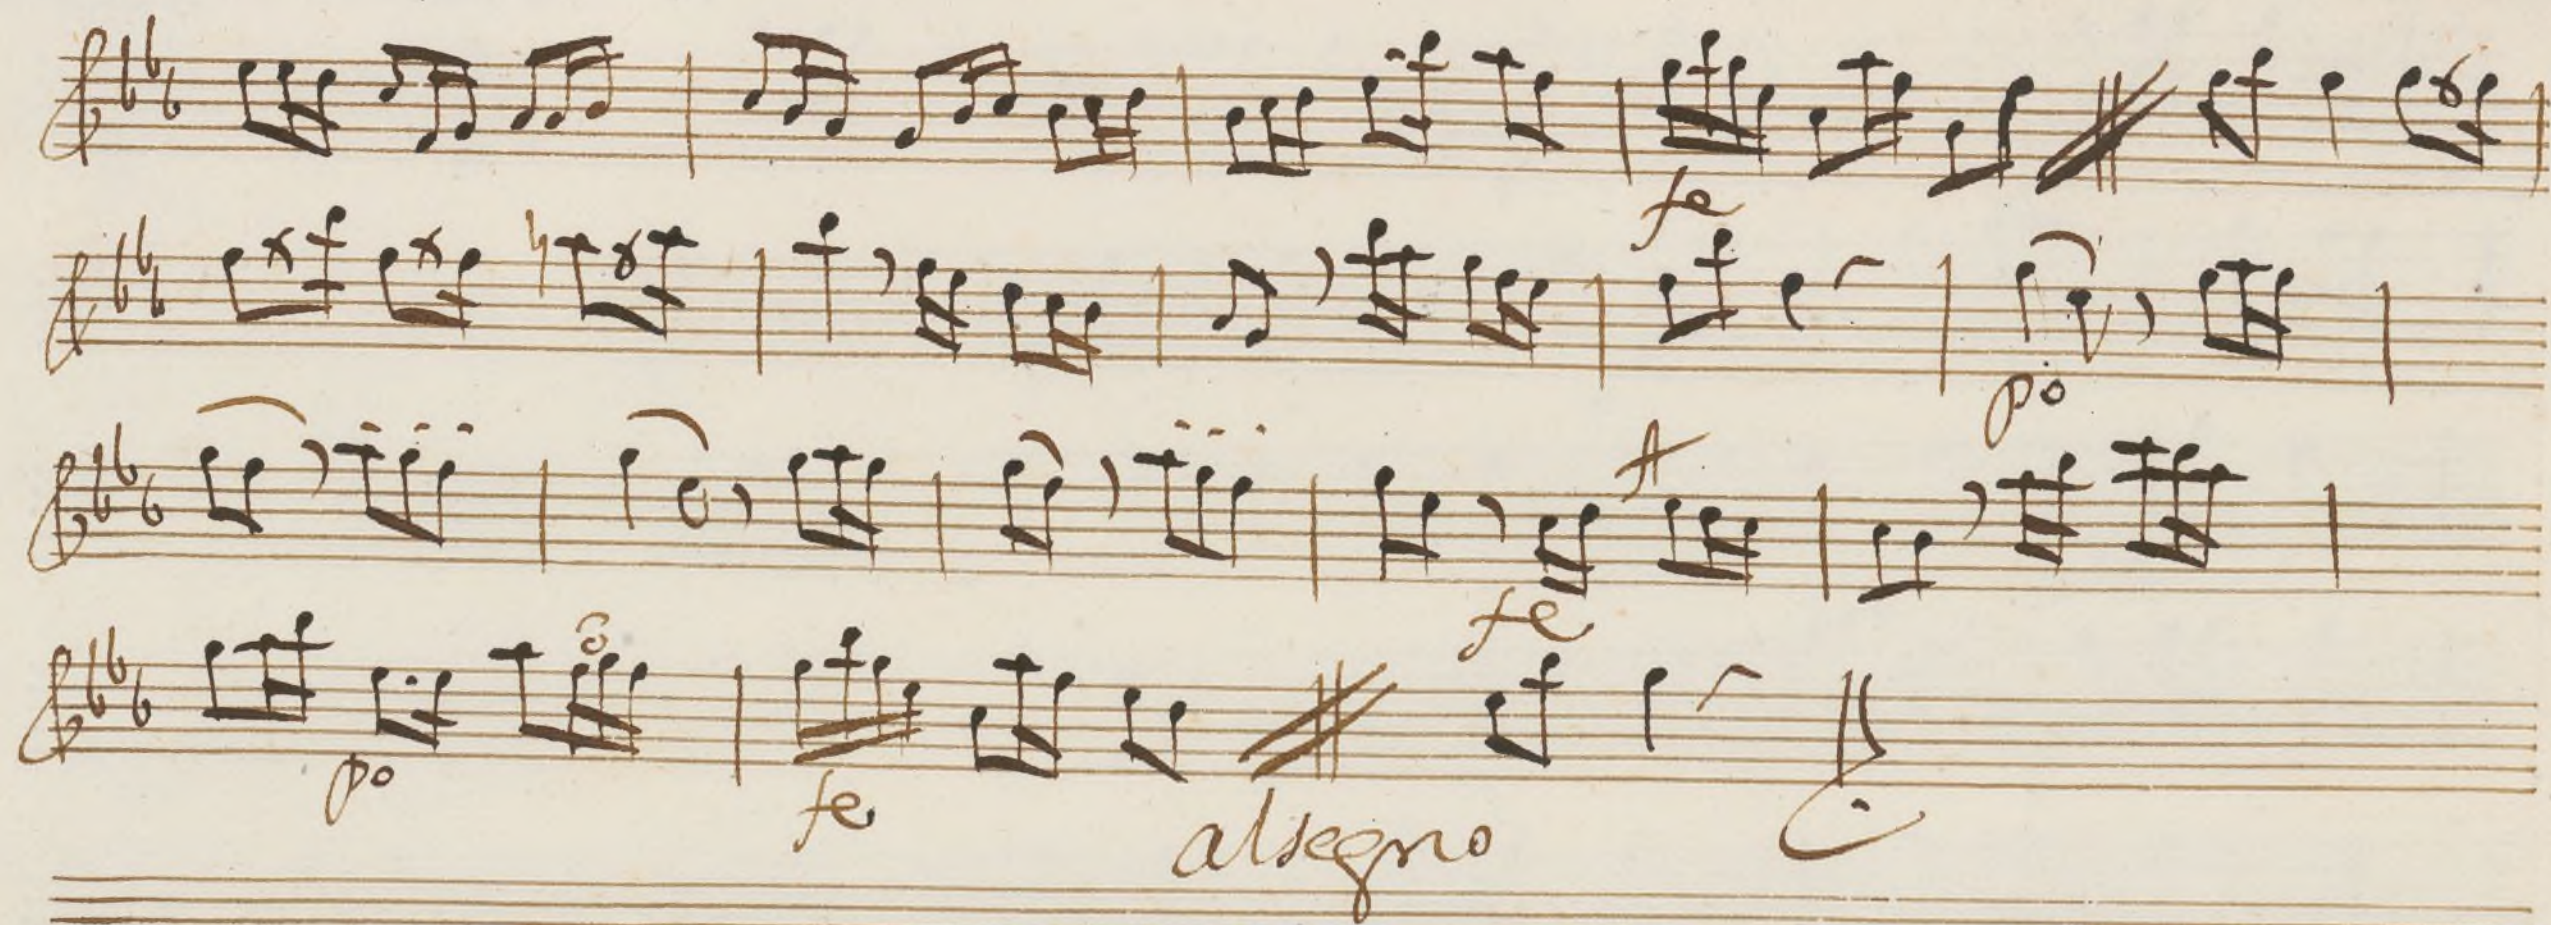 fe
po
fe
3
po
fe
alsegno